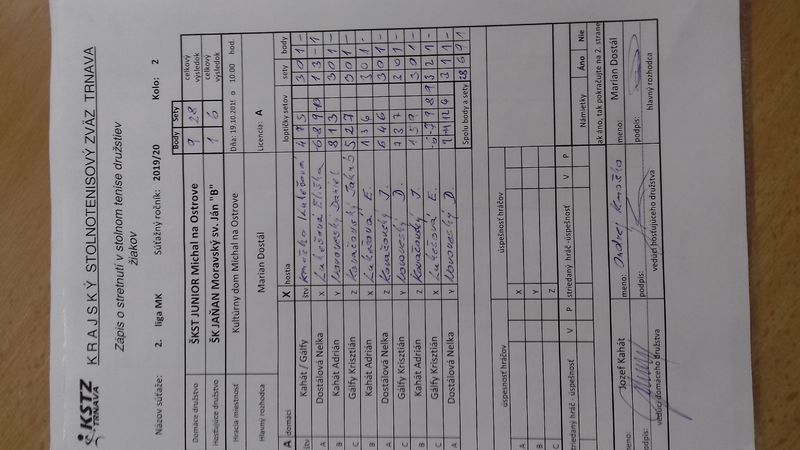 KSTZ
TRNAVA
KRAJSKÝ STOLNOTENISOVÝ ZVÄZ TRNAVA
Zápis o stretnutí v stolnom tenise družstiev
žiakov
Názov súťaže: 2. liga MK Súťažný ročník: 2019/20 Kolo: 2
Body Sety
Domáce družstvo ŠKST JUNIOR Michal na Ostrove 9 28 celkový výsledok
Hosťujúce družstvo ŠK JAŇAN Moravský sv. Ján "B" 1 6 celkový výsledok
Hracia miestnosť Kultúrny dom Michal na Ostrove Dňa: 19.10.2019 o 10:00 hod.
Hlavný rozhodca Marian Dostál Licencia: A
A domáci X hostia loptičky setov sety body
štv Kahát / Gálfy štv 4 7 5 3 0 1 -
A Dostálová Nelka X Lukešová Eliška 1 3 - 1
B Kahát Adrián Y Daniel 8 1 3 3 0 1 -
C Gálfy Krisztián Z Kovačovský Jakub 5 2 7 3 0 1 -
B Kahát Adrián X Lukešová E. 1 3 6 3 0 1 -
A Dostálová Nelka Z Kovačovský J. 6 4 6 3 0 1 -
C Gálfy Krisztián Y D. 7 3 7 3 0 1 -
B Kahát Adrián Z Kovačovský J. 1 5 9 3 0 1 -
C Gálfy Krisztián X Lukešová E. 3 2 1 -
A Dostálová Nelka Y D. 3 1 1 -
Spolu body a sety 28 6 9 1
úspešnosť hráčov úspešnosť hráčov
A X
B Y
C Z
striedaný hráč - úspešnosť V P striedaný hráč - úspešnosť V P
Námietky Áno Nie
ak áno, tak pokračujte na 2. strane
meno: Jozef Kahát meno: Ondrej meno: Marian Dostál
podpis: podpis: podpis:
vedúci domáceho družstva vedúci hosťujúceho družstva hlavný rozhodca